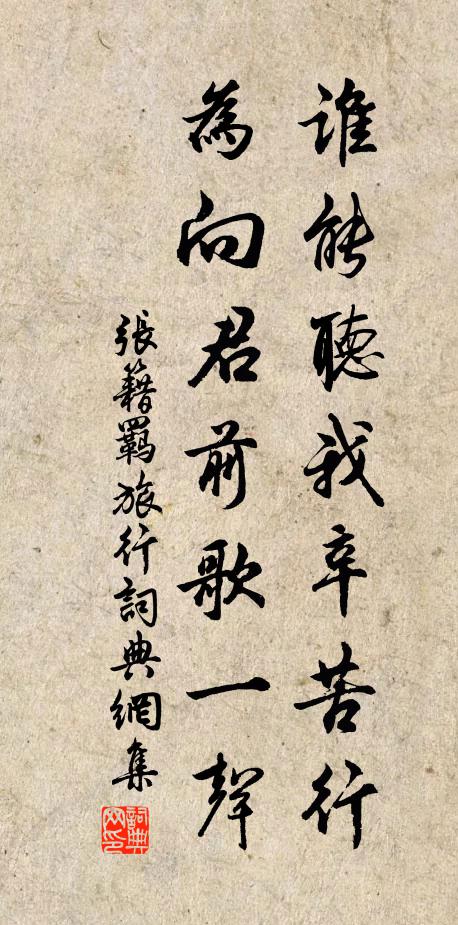 誰能聽我辛苦行
為向君前歌一聲
張籍羈旅行詞典網集
詞典网印